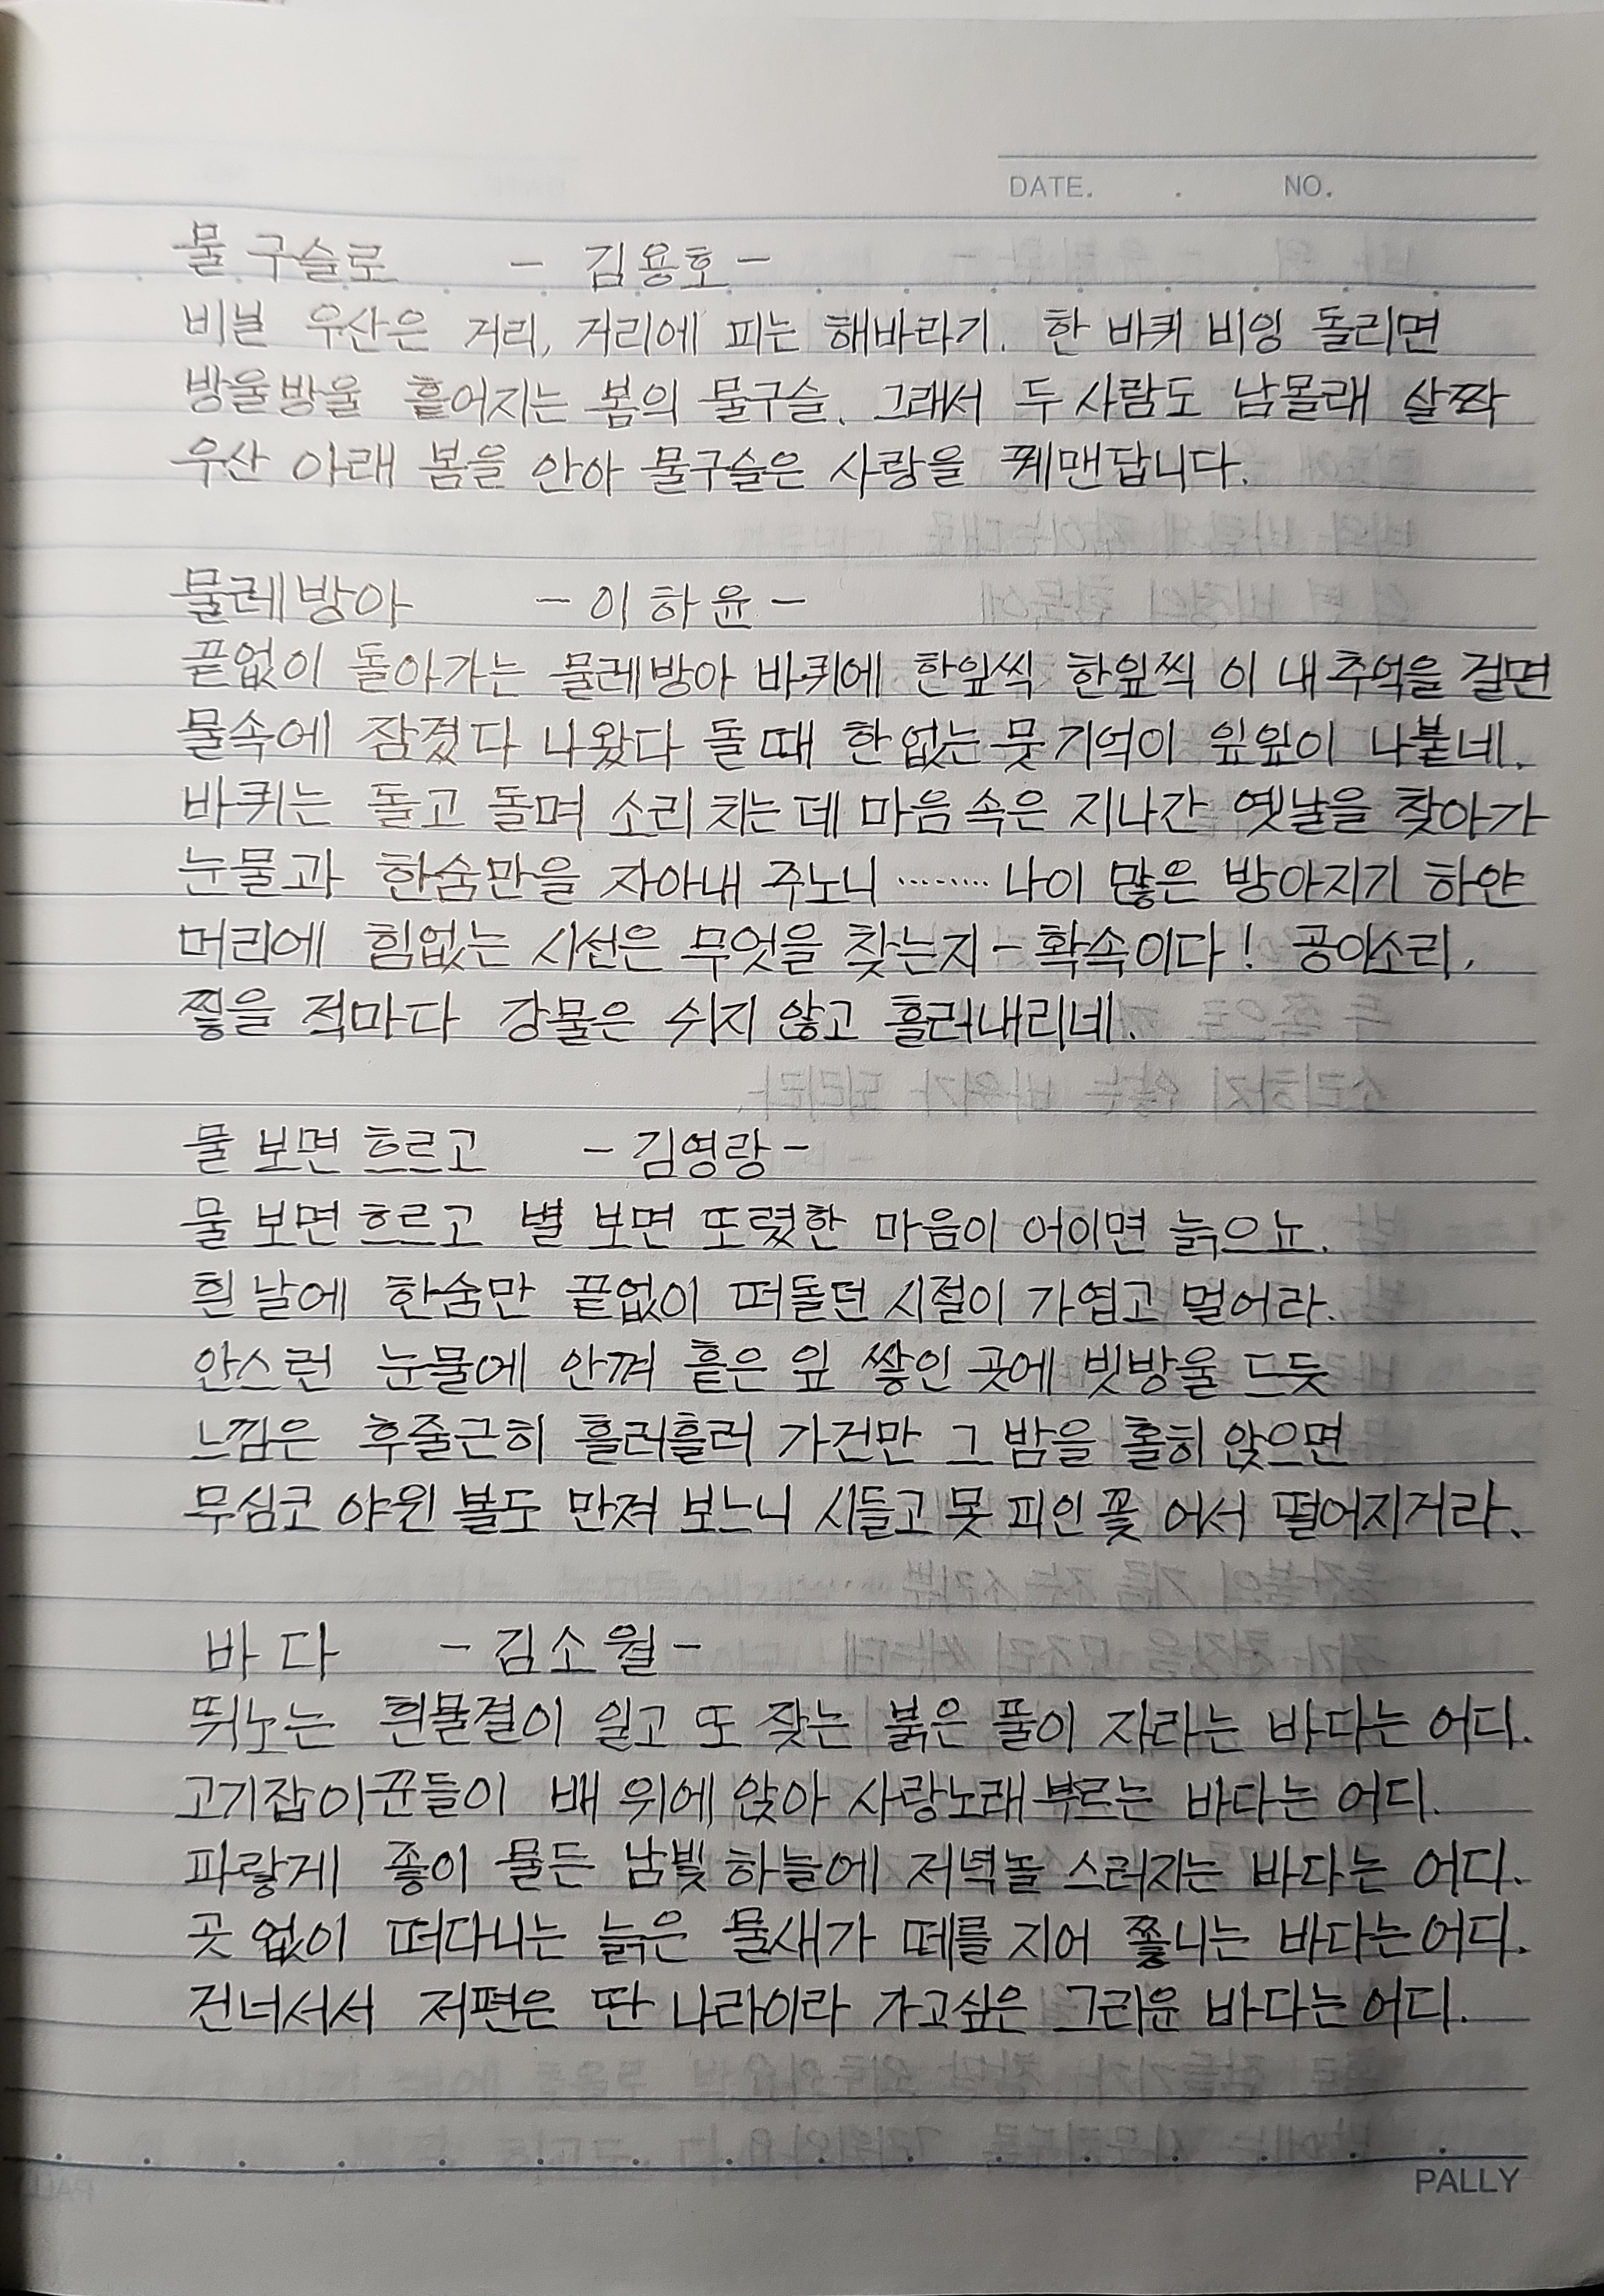 DATE. . NO.
물 구슬로 - 김용호 -
비닐 우산은 거리, 거리에 피는 해바라기. 한 바퀴 비잉 돌리면
방울방울 흩어지는 봄의 물구슬. 그래서 두 사람도 남몰래 살짝
우산 아래 봄을 안아 물구슬은 사랑을 꿰맨답니다.
물레방아 - 이하윤 -
끝없이 돌아가는 물레방아 바퀴에 한잎씩 한잎씩 이 내 추억을 걸면
물속에 잠겼다 나왔다 돌 때 한없는 뭇 기억이 잎잎이 나붙네.
바퀴는 돌고 돌며 소리 치는데 마음 속은 지나간 옛날을 찾아가
눈물과 한숨만을 자아내 주노니 ‥‥‥‥ 나이 많은 방아지기 하얀
머리에 힘없는 시선은 무엇을 찾는지 - 확속이다! 공이소리,
찧을 적마다 강물은 쉬지 않고 흘러내리네.
물 보면 흐르고 - 김영랑 -
물 보면 흐르고 별 보면 또렸한 마음이 어이면 늙으뇨.
흰 날에 한숨만 끝없이 떠돌던 시절이 가엽고 멀어라.
안스런 눈물에 안껴 흩은 잎 쌓인 곳에 빗방울 드듯
느낌은 후줄근히 흘러흘러 가건만 그 밤을 홀히 앉으면
무심코 야윈 볼도 만져 보느니 시들고 못 피인 꽃 어서 떨어지거라.
바다 - 김소월 -
뛰노는 흰물결이 일고 또 잦는 붉은 풀이 자라는 바다는 어디.
고기잡이꾼들이 배 위에 앉아 사랑노래 부르는 바다는 어디.
파랗게 좋이 물든 남빛 하늘에 저녁놀 스러지는 바다는 어디.
곳 없이 떠다니는 늙은 물새가 떼를 지어 쫓니는 바다는 어디.
건너서서 저편은 딴 나라이라 가고싶은 그리운 바다는 어디.
PALLY